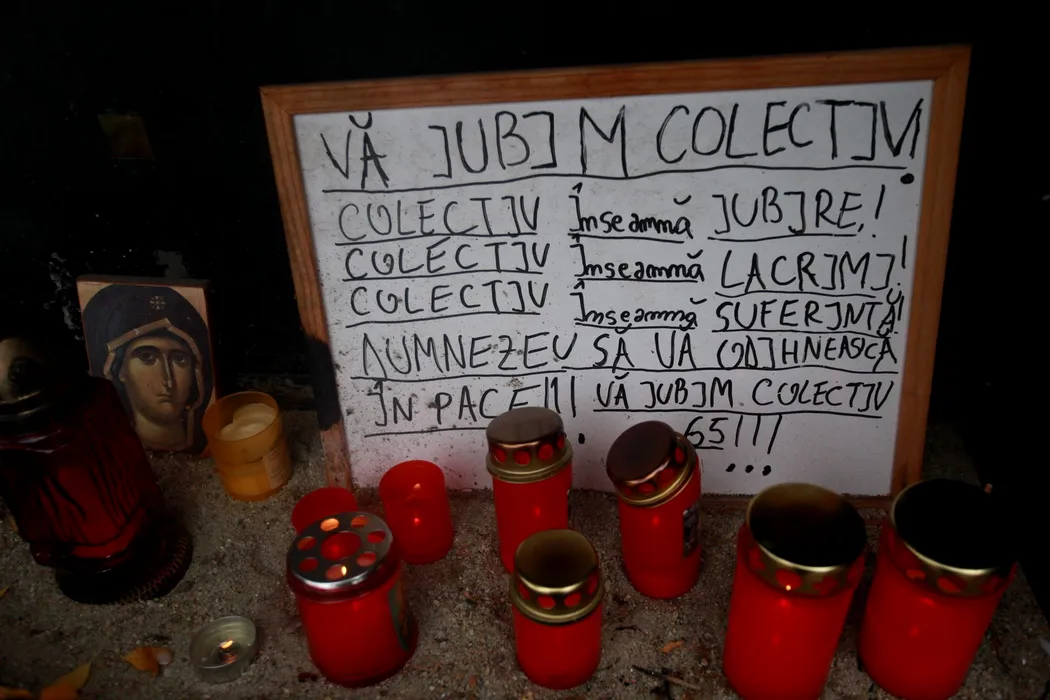 VĂ IUBIM COLECTIV!
COLECTIV Înseamnă IUBIRE!
COLECTIV Înseamnă LACRIMI!
COLECTIV Înseamnă SUFERINȚĂ!
DUMNEZEU SĂ VĂ ODIHNEASCĂ
ÎN PACE!!! VĂ IUBIM COLECTIV
65!!!